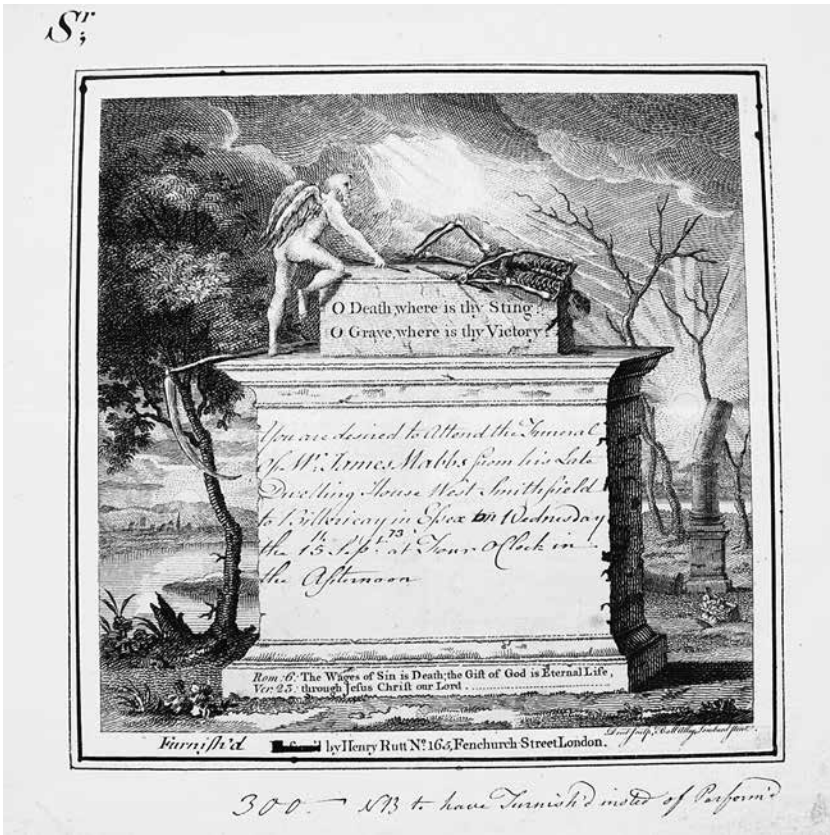 Sr;
O Death, where is thy Sting?
O Grave, where is thy Victory?
You are desired to Attend the Funeral
Of Mr. James Mabbs from his Late
Dwelling House West Smithfield
to Billericay in Essex on Wednesday
the 15 Sepr. at Four O'Clock in
the Afternoon
Rom: 6: The Wages of Sin is Death; the Gift of God is Eternal Life,
Ver: 23: through Jesus Christ our Lord
Furnish'd by Henry Rutt No. 165, Fenchurch Street London.
300.— NB to have Furnish'd insted of Perform'd